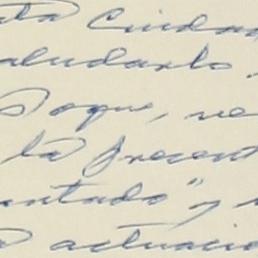 ta Ciudad
aludarlo
Roque, ve
la present
untado" y
actuacio